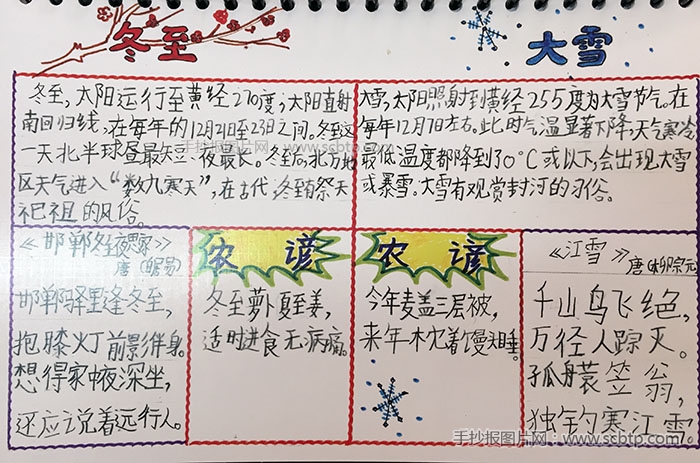 冬至
大雪
冬至，太阳运行至黄经270度；太阳直射
南回归线，在每年的12月21日至23日之间。冬至这
一天北半球昼最短、夜最长。冬至后，北方地
区天气进入“数九寒天”，在古代，冬至有祭天
祀祖的风俗。
大雪，太阳照射到横经255度为大雪节气。在
每年12月7日左右。此时气温显著下降，天气寒冷
最低温度都降到了0℃或以下，会出现大雪
或暴雪。大雪有观赏封河的习俗。
《邯郸冬至夜思家》
唐
邯郸驿里逢冬至，
抱膝灯前影伴身。
想得家中夜深坐，
还应说着远行人。
农谚
冬至萝卜夏至姜，
适时进食无病痛。
农谚
今年麦盖三层被，
来年枕着馒头睡。
《江雪》
唐（柳宗元）
千山鸟飞绝，
万径人踪灭。
孤舟蓑笠翁，
独钓寒江雪。
手抄报图片网：www.scbtp.com